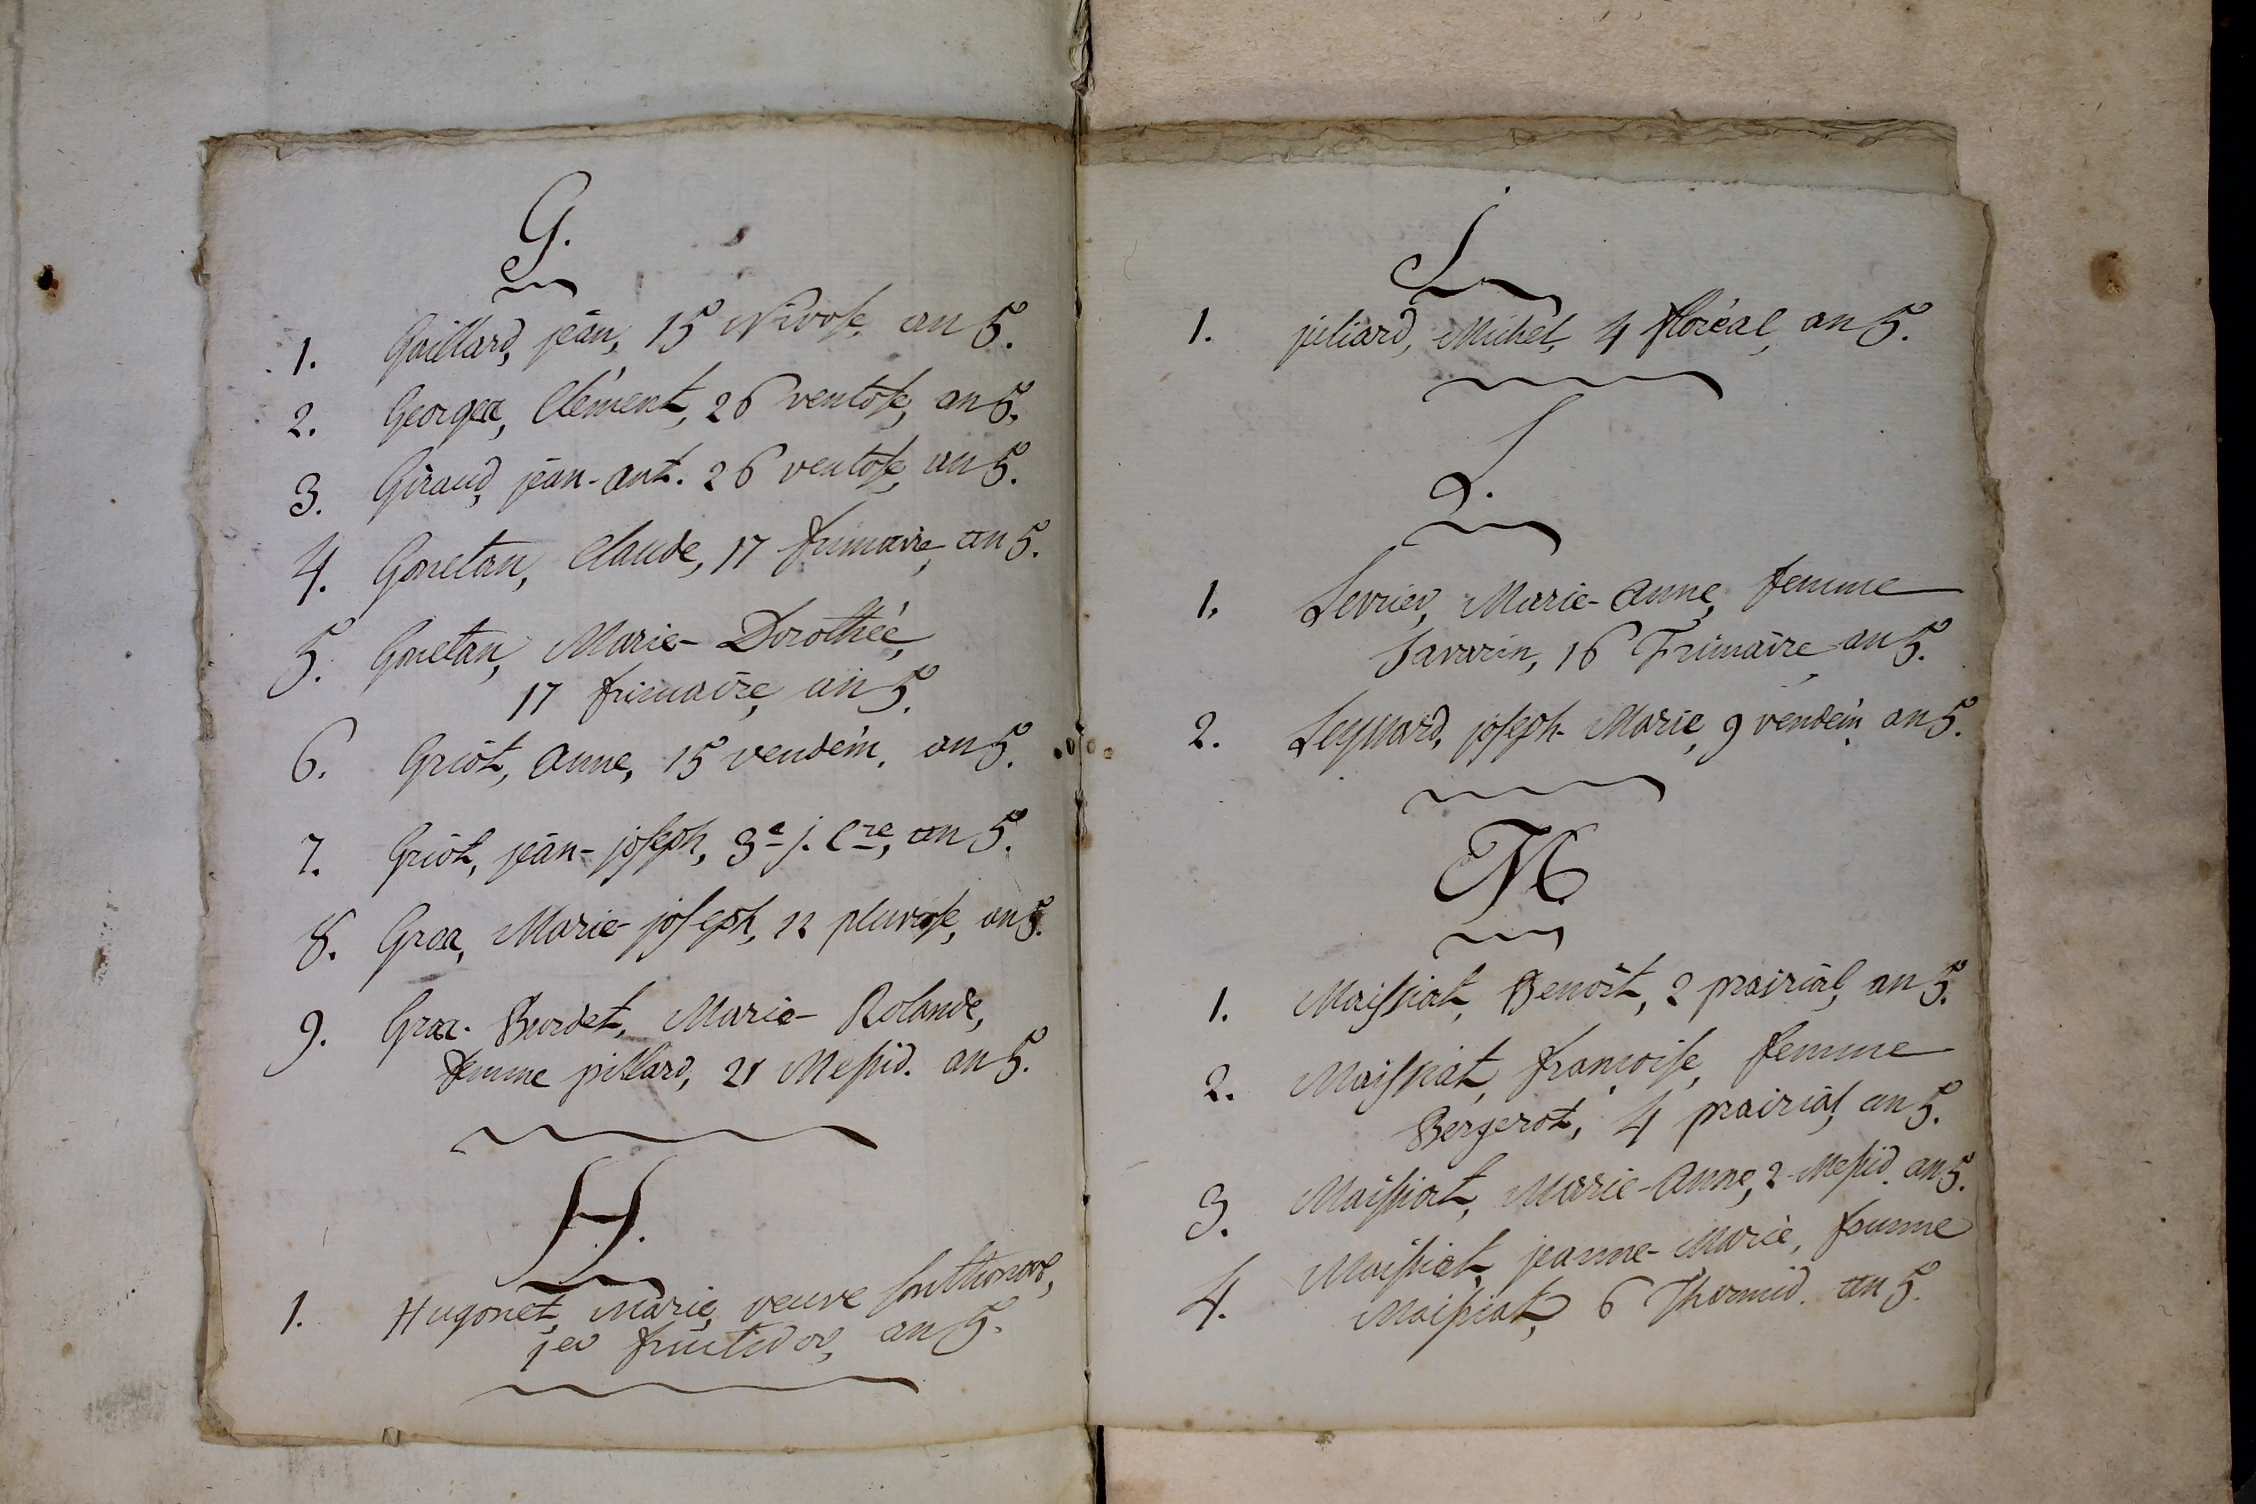 G.
1. Gaillard, jean, 15 Nivose, an 5.
2. Georger, Clément, 26 ventose, an 5.
3. Giraud, jean-ant. 26 ventose, an 5.
4. Gonetan, Claude, 17 frimaire, an 5.
5. Gonetan, Marie-Dorothée,
17 frimaire, an 5.
6. Griot, Anne, 15 vendém. an 5.
7. Griot, jean-joseph, 3e j. Cre, an 5.
8. Gros, Marie-joseph, 12 pluviose, an 5.
9. Gros-Burdet, Marie-Rolande,
femme pillard, 21 Messid. an 5.
H.
1. Hugonet, Marie, veuve
1er fructidor, an 5.
J.
1. juliard, Michel, 4 floréal, an 5.
L.
1. Levrier, Marie-Anne, femme
Savarin, 16 Frimaire, an 5.
2. Leynard, joseph-Marie, 9 vendém. an 5.
M.
1. Maissiat, Benoit, 2 prairial, an 5.
2. Maissiat, françoise, femme
Bergerot, 4 prairial, an 5.
3. Maissiat, Marie-Anne, 2 Messid. an 5.
4. Maissiat, jeanne-Marie, femme
Maissiat, 6 Thermid. an 5.